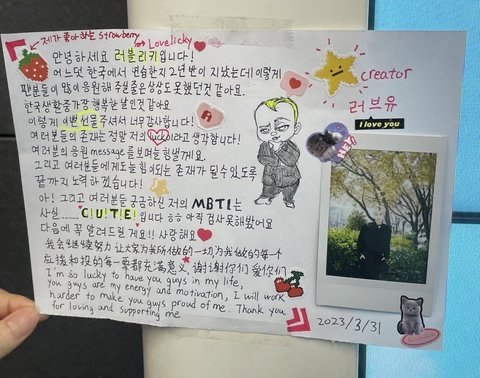 제가 좋아하는 strawberry
Lovelicky
안녕하세요 러블리키입니다!
어느덧 한국에서 연습한지 2년 반이 지났는데 이렇게
팬분들이 많이 응원해 주실줄은 상상도 못했던것 같아요.
한국생활중 가장 행복한 날인것 같아요.
이렇게 이쁜 선물 주셔서 너무 감사합니다!
여러분들의 존재는 정말 저의 lucky이라고 생각합니다!
여러분의 응원 message를 보며 늘 힘낼게요.
그리고 여러분들에게도 늘 힘이되는 존재가 될수 있도록
끝까지 노력하겠습니다!
아! 그리고 여러분들 궁금하신 저의 MBTI는
사실...... C U T E! 입니다 ㅎㅎ 아직 검사 못해봤어요
다음에 꼭 알려드릴게요!! 사랑해요
我会继续努力 让大家为我所做的一切 为我做的每个
应援和投的每一票都充满意义, 谢谢你们 爱你们
I'm so lucky to have you guys in my life,
you guys are my energy and motivation, I will work
harder to make you guys proud of me. Thank you
for loving and supporting me
creator
러브유
I love you
2023/3/31